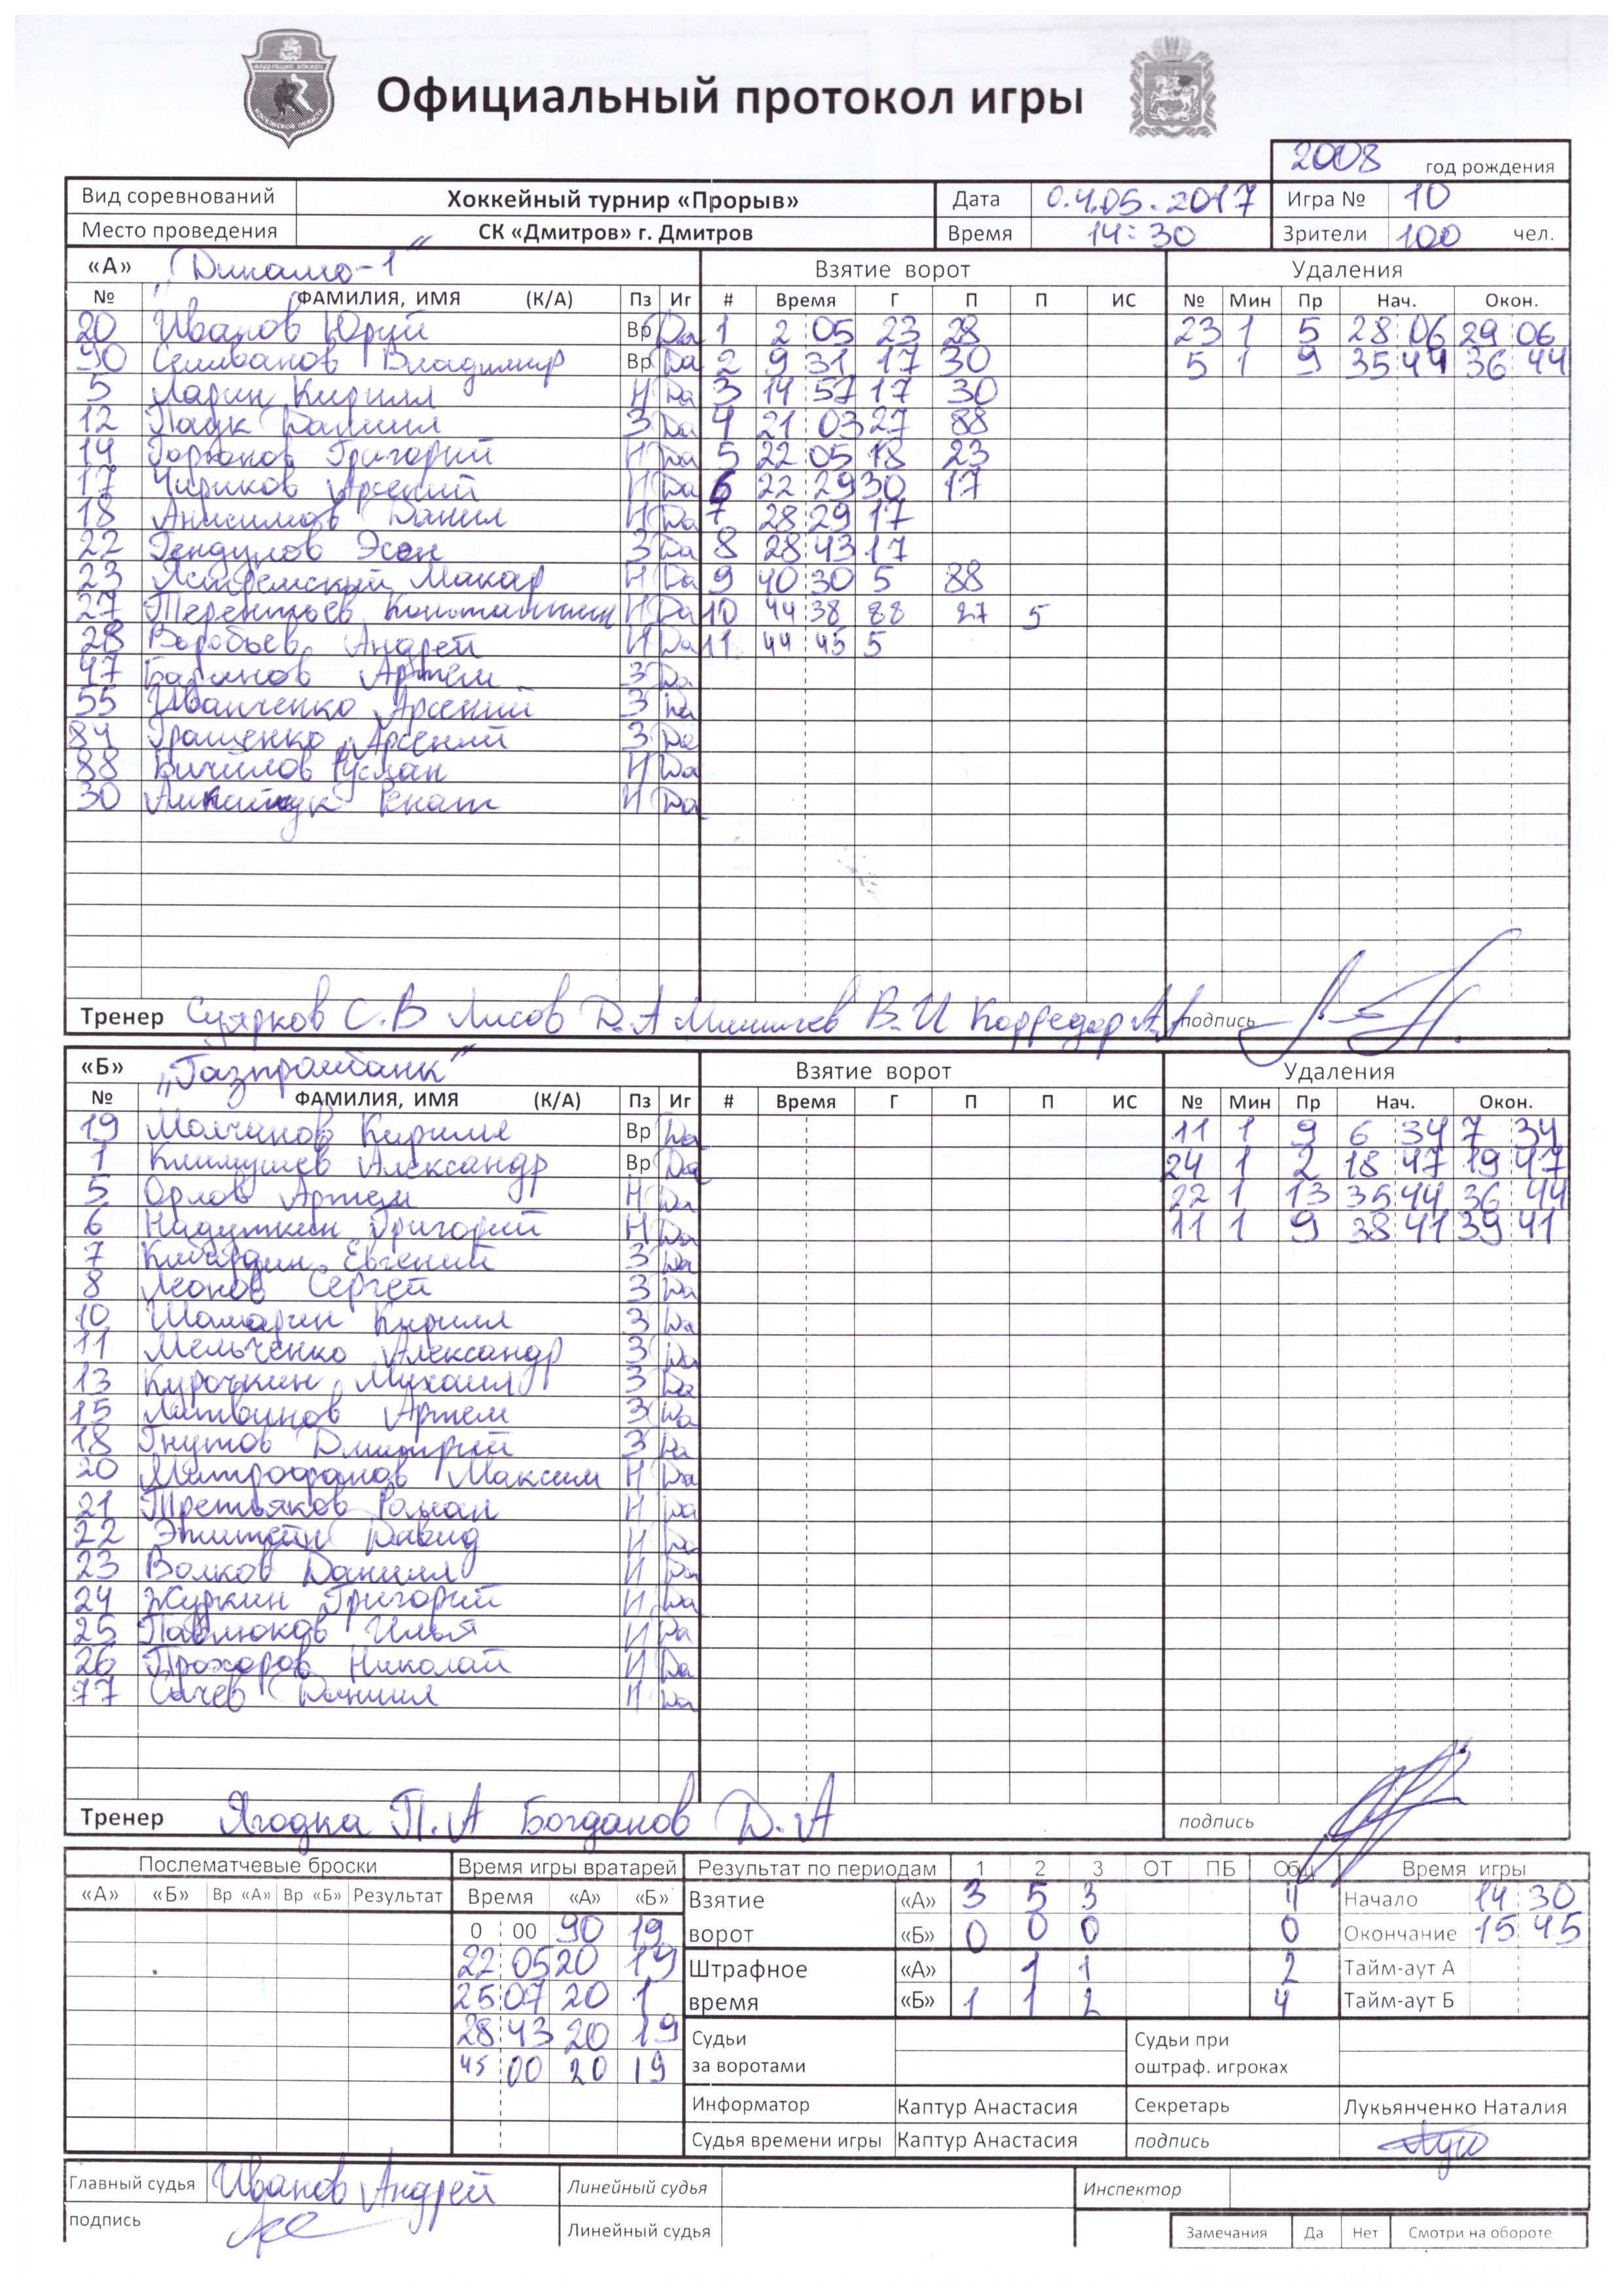 Официальный протокол игры
2008 год рождения
Вид соревнований Хоккейный турнир «Прорыв» Дата 04.05.2017 Игра № 10
Место проведения СК «Дмитров» г. Дмитров Время 14:30 Зрители 100 чел.
«А» "Динамо-1" Взятие ворот Удаления
№ ФАМИЛИЯ, ИМЯ (К/А) Пз Иг # Время Г П П ИС № Мин Пр Нач. Окон.
20 Иванов Юрий Вр Да 1 2 05 23 28 23 1 5 28 06 29 06
90 Селиванов Владимир Вр Да 2 9 31 17 30 5 1 9 35 44 36 44
5 Ларин Кирилл Н Да 3 14 57 17 30
12 Паук Даниил З Да 4 21 03 27 88
14 Григорий Н Да 5 22 05 18 23
17 Чириков Арсений Н Да 6 22 29 30 17
18 Анисимов Данил Н Да 7 28 29 17
22 Гендунов Эсен З Да 8 28 43 17
23 Ястремский Макар Н Да 9 40 30 5 88
27 Терентьев Константин Н Да 10 44 38 88 27 5
28 Воробьев Андрей Н Да 11 44 45 5
47 Баранов Артем З Да
55 Иванченко Арсений З Да
84 Гращенко Арсений З Да
88 Бичилов Руслан Н Да
30 Ренат Н Да
Тренер Суярков С.В Лисов Д.А В.И Корредор А.А подпись
«Б» "Газпромбанк" Взятие ворот Удаления
№ ФАМИЛИЯ, ИМЯ (К/А) Пз Иг # Время Г П П ИС № Мин Пр Нач. Окон.
19 Молчанов Кирилл Вр Да 11 1 9 6 34 7 34
1 Климушев Александр Вр Да 24 1 2 18 47 19 47
5 Орлов Артем Н Да 22 1 13 35 44 36 44
6 Надуткин Григорий Н Да 11 1 9 38 41 39 41
7 Евгений З Да
8 Леонов Сергей З Да
10 Шамарин Кирилл З Да
11 Мельченко Александр З Да
13 Курочкин Михаил З Да
15 Литвинов Артем З Да
18 Гнутов Дмитрий З Да
20 Митрофанов Максим Н Да
21 Третьяков Роман Н Да
22 Эпштейн Давид Н Да
23 Волков Даниил Н Да
24 Журкин Григорий Н Да
25 Павлюков Илья Н Да
26 Прохоров Николай Н Да
77 Сачев Даниил Н Да
Тренер Ягодка П.А Богданов Д.А подпись
Послематчевые броски Время игры вратарей Результат по периодам 1 2 3 ОТ ПБ Общ Время игры
«А» «Б» Вр «А» Вр «Б» Результат Время «А» «Б» Взятие «А» 3 5 3 11 Начало 14 30
0 00 90 19 ворот «Б» 0 0 0 0 Окончание 15 45
22 05 20 19 Штрафное «А» 1 1 2 Тайм-аут А
25 07 20 1 время «Б» 1 1 2 4 Тайм-аут Б
28 43 20 19 Судьи Судьи при
45 00 20 19 за воротами оштраф. игроках
Информатор Каптур Анастасия Секретарь Лукьянченко Наталия
Судья времени игры Каптур Анастасия подпись
Главный судья Иванов Андрей Линейный судья Инспектор
подпись Линейный судья Замечания Да Нет Смотри на обороте